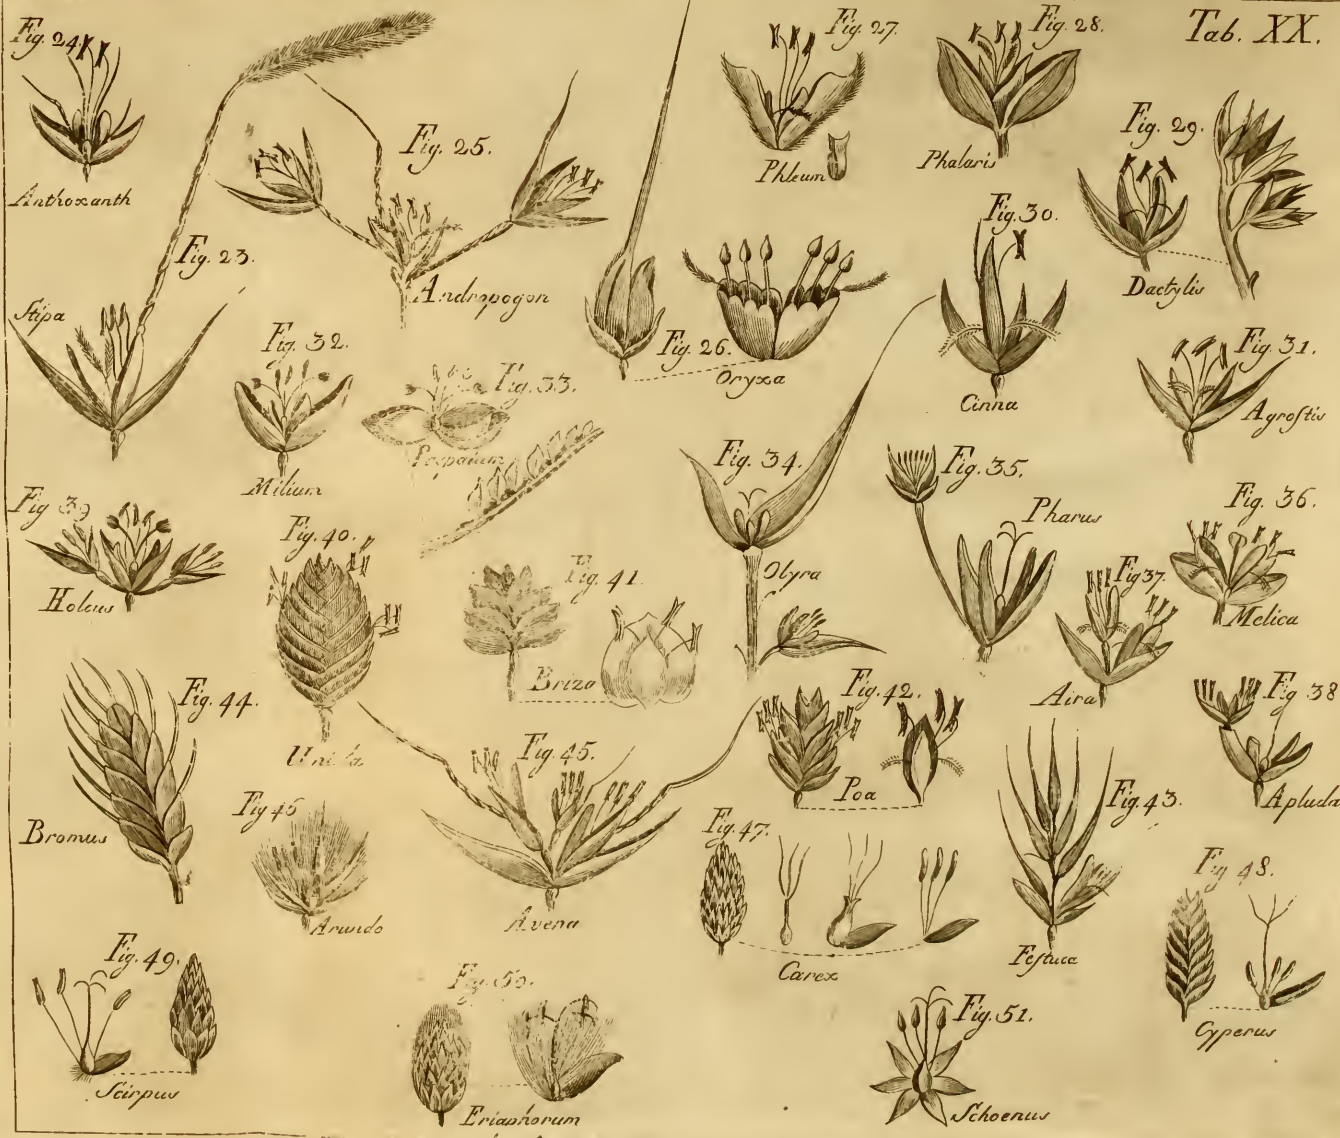 Tab. XX.
Fig. 24.
Anthoxanth
Fig. 23.
Stipa
Fig. 25.
Andropogon
Fig. 26.
Oryza
Fig. 27.
Phleum
Fig. 28.
Phalaris
Fig. 29.
Dactylis
Fig. 30.
Cinna
Fig. 31.
Agrostis
Fig. 32.
Milium
Fig. 33.
Paspalum
Fig. 34.
Olyra
Fig. 35.
Pharus
Fig. 36.
Melica
Fig 37.
Aira
Fig 38
Apluda
Fig 39
Holcus
Fig. 40.
Uniola
Fig. 41.
Briza
Fig. 42.
Poa
Fig. 43.
Festuca
Fig. 44.
Bromus
Fig. 45.
Avena
Fig 46
Arundo
Fig. 47.
Carex
Fig 48.
Cyperus
Fig. 49.
Scirpus
Fig. 50.
Eriaphorum
Fig. 51.
Schoenus